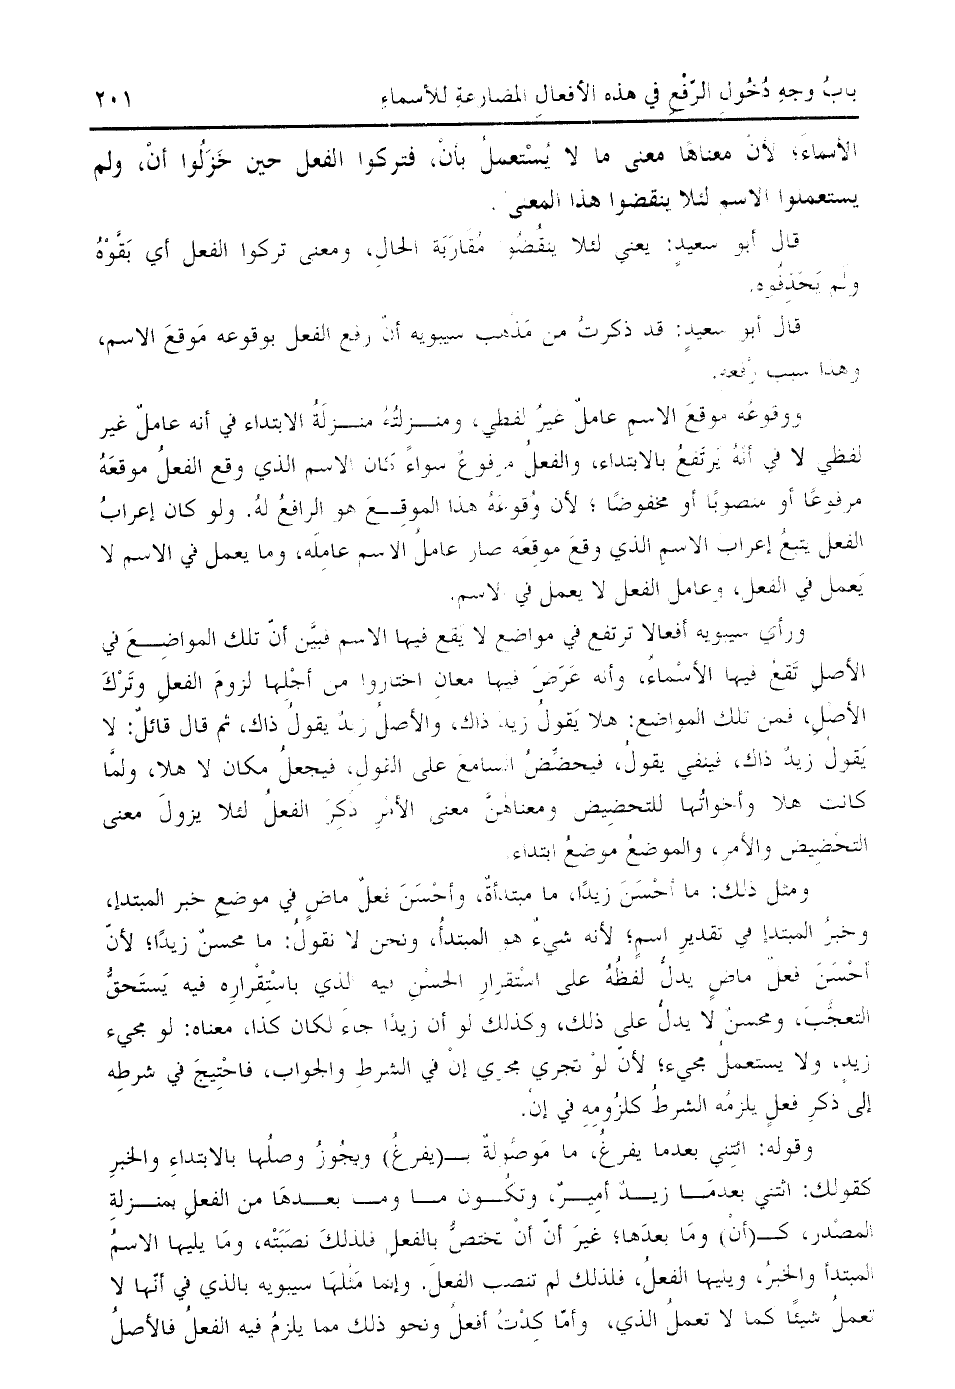 بابُ وجهِ دُخُولِ الرّفْعِ في هذه الأفعالِ المضارعةِ للأسماءِ ٢٠١
الأسماءَ؛ لأنّ معناهَا معنى ما لا يُسْتعملُ بأنْ، فتركوا الفعل حين خَزَلُوا أنْ، ولم
يستعملوا الاسم لئلا ينقضوا هذا المعنى.
قال أبو سعيدٍ: يعني لئلا ينقُضُوا مُقَارَبَة الحالِ، ومعنى تركوا الفعل أي بَقَّوْهُ
ولم يَحَذِفُوه.
قال أبو سعيدٍ: قد ذكرتُ من مَذهب سيبويه أنّ رفع الفعل بوقوعه مَوقعَ الاسم،
وهذا سبب رفعه.
ووقوعُه موقعَ الاسمِ عاملٌ غيرُ لفظي، ومنـزلتُهُ منـزلَةُ الابتداء في أنه عاملٌ غير
لفظي لا في أنّهُ يَرتَفعُ بالابتداء، والفعلُ مرفوعٌ سواءً كان الاسم الذي وقع الفعلُ موقعَهُ
مرفوعًا أو منصوبًا أو مخفوضًا؛ لأن وُقوعَهُ هذا الموقـعَ هو الرافعُ لهُ. ولو كان إعرابُ
الفعل يتبعُ إعراب الاسمِ الذي وقعَ موقعَه صار عاملُ الاسم عاملَه، وما يعمل في الاسم لا
يَعمل في الفعل، وعامل الفعل لا يعمل في الاسم.
ورأى سيبويه أفعالا ترتفع في مواضع لا يَقع فيها الاسم فبيَّن أنّ تلك المواضِـعَ في
الأصلِ تَقعُ فيها الأسْماءُ، وأنه عَرَضَ فيها معانٍ اختاروا من أجْلِها لزومَ الفعلِ وتَرْكَ
الأصلِ، فمن تلك المواضع: هلا يَقولُ زيدٌ ذاك، والأصلُ زيدٌ يقولُ ذاك، ثم قال قائلٌ: لا
يَقولُ زيدٌ ذاك، فينفي يقولُ، فيحضِّضُ السامعَ على القولِ، فيجعلُ مكان لا هلا، ولمَّا
كانت هلا وأخواتُها للتحضيض ومعناهُنَّ معنى الأمْرِ ذُكِرَ الفعلُ لئلا يزولَ معنى
التحْضِيض والأمرِ، والموضعُ موضعُ ابتداء.
ومثل ذلك: ما أحْسَنَ زيدًا، ما مبتدأةٌ، وأحْسَنَ فعلٌ ماضٍ في موضعِ خبرِ المبتدإ،
وخبرُ المبتدإ في تقديرِ اسمٍ؛ لأنه شيءٌ هو المبتدأُ، ونحن لا نقولُ: ما محسنٌ زيدًا؛ لأنّ
أحْسَنَ فعلٌ ماضٍ يدلُّ لفظُهُ على اسْتقرارِ الحسْنِ فيه الذي باسْتِقْرارِه فيه يَستَحقُّ
التعجُّبَ، ومحسنٌ لا يدلُّ على ذلك، وكذلك لو أن زيدًا جاءَ لكان كذا، معناه: لو مجيء
زيدٍ، ولا يستعملُ مجيء؛ لأنّ لوْ تجري مجرى إنْ في الشرط والجواب، فاحْتِيجَ في شرطِه
إلى ذكرِ فعلٍ يلزمُه الشرطُ كلزُومِهِ في إنْ.
وقوله: ائتِني بعدما يفرغُ، ما مَوصُولةٌ بـ(يفرغُ) ويجُوزُ وصلُها بالابتداءِ والخبرِ
كقولك: ائتني بعدمَـا زيـدٌ أميـرٌ، وتكُـون مـا ومـا بعـدهَا من الفعلِ بمنـزلةِ
المصْدرِ، كـ(أنْ) ومَا بعدَها؛ غيرَ أنّ أنْ تختصُّ بالفعلِ فلذلكَ نصَبَتْه، ومَا يليها الاسمُ
المبتدأ والخبرُ، ويليها الفعلُ، فلذلك لم تنصب الفعلَ. وإنما مَثلَهَا سيبويه بالذي في أنّها لا
تعملُ شيئًا كما لا تعملُ الذي، وأمّا كِدْتُ أفعلُ ونحو ذلك مما يلزمُ فيه الفعلُ فالأصلُ